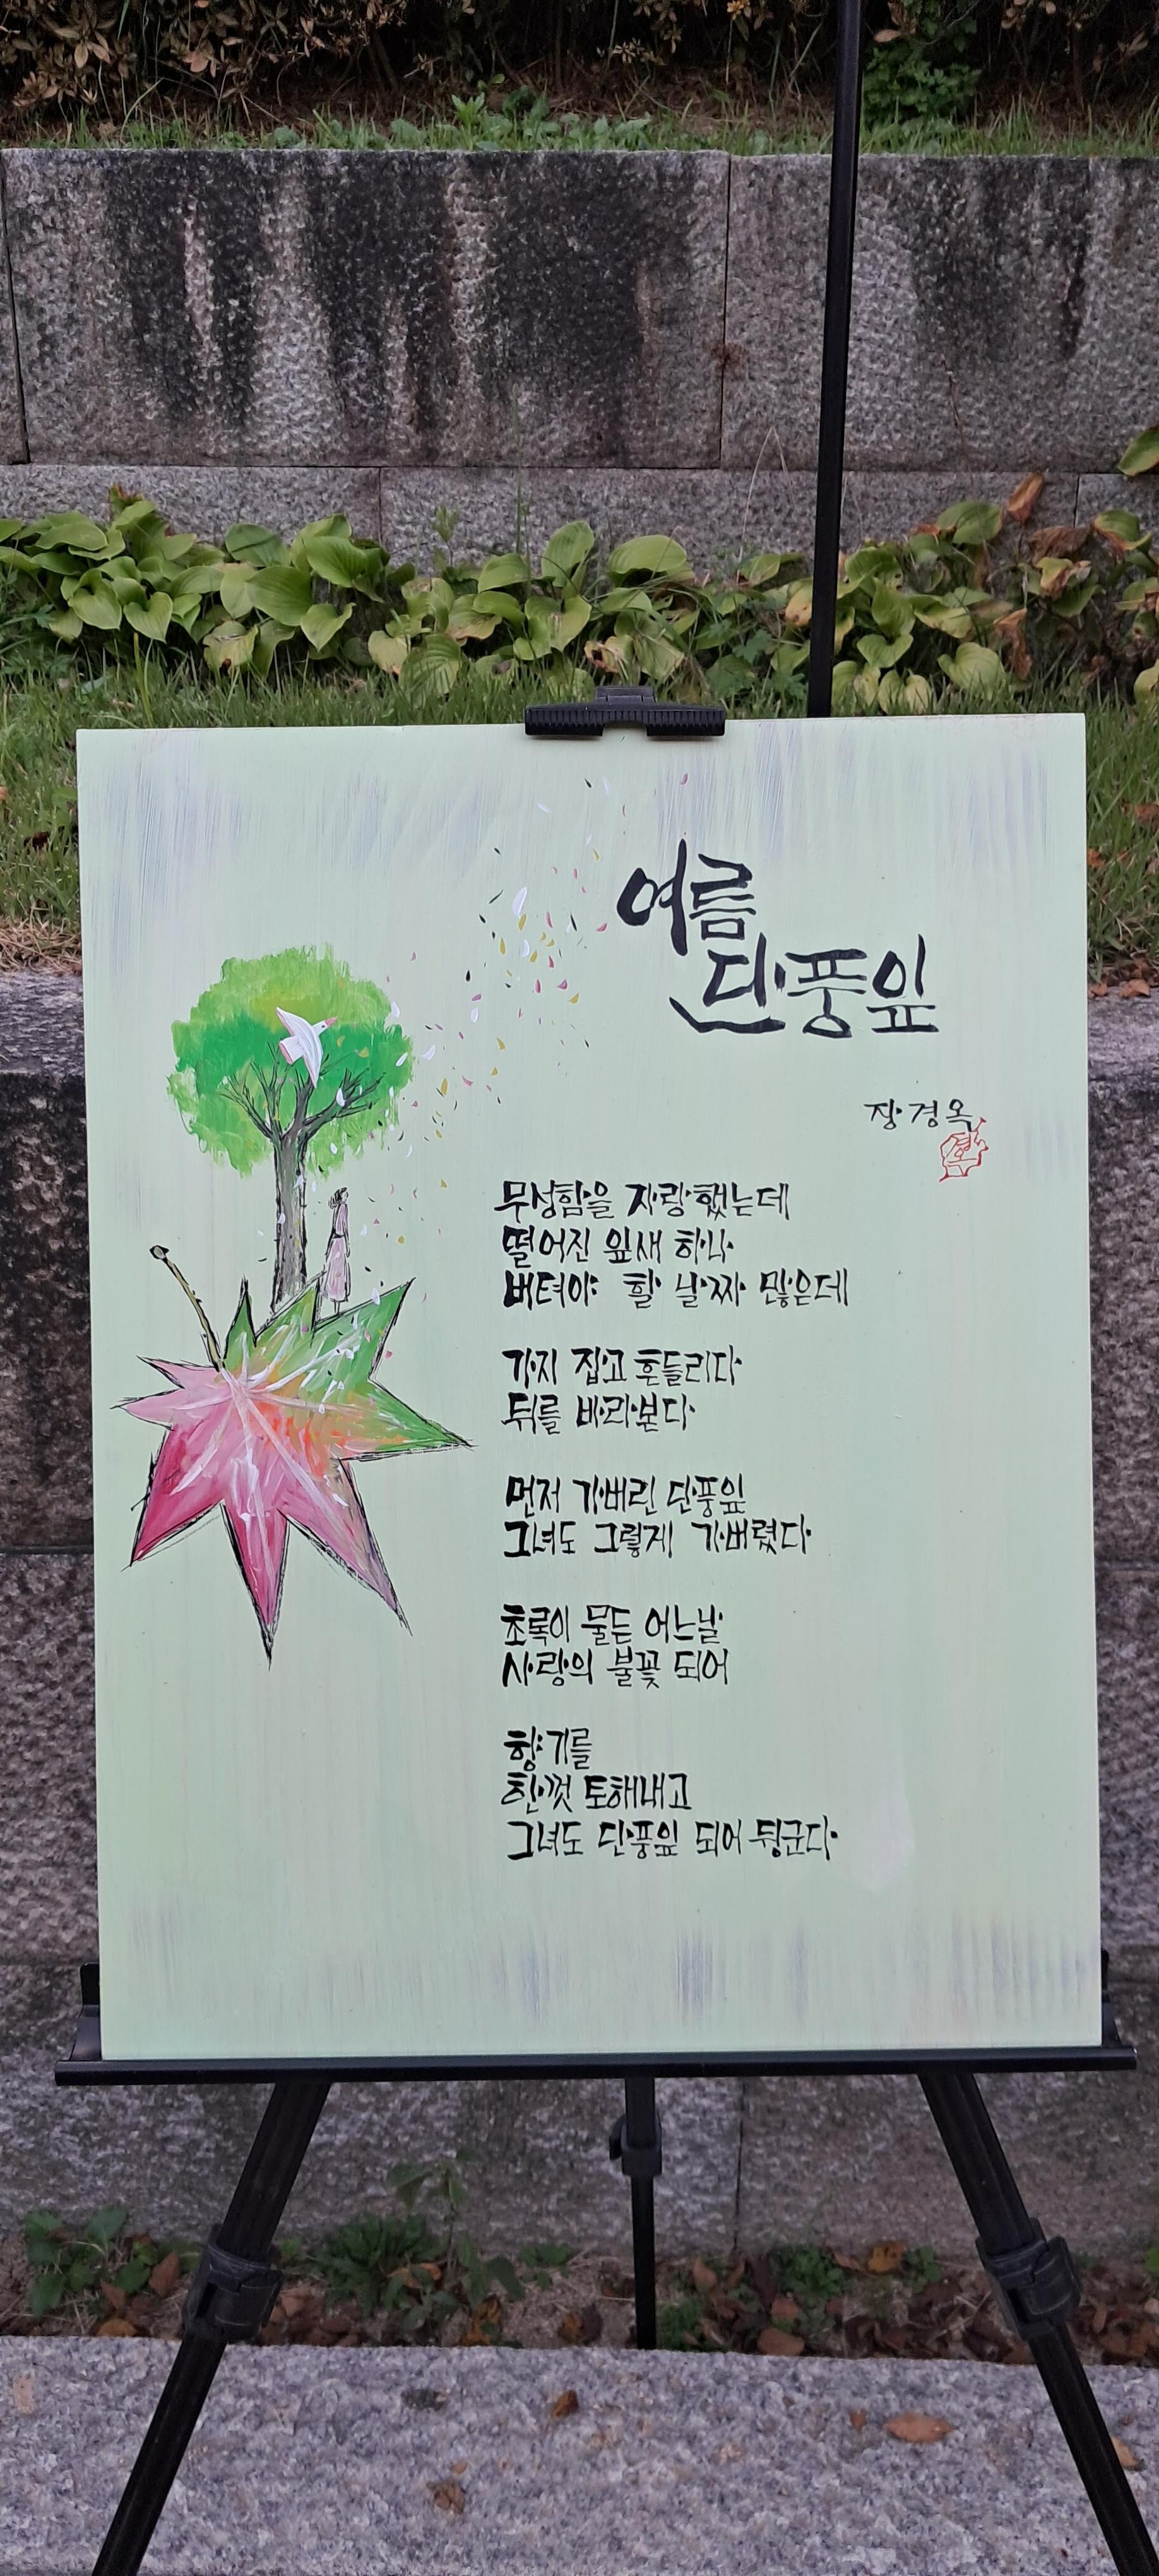 여름
단풍잎
장경옥
무성함을 자랑했는데
떨어진 잎새 하나
버텨야 할 날짜 많은데
가지 집고 흔들리다
뒤를 바라본다
먼저 가버린 단풍잎
그녀도 그렇게 가버렸다
초록이 물든 어느날
사랑의 불꽃 되어
향기를
한껏 토해내고
그녀도 단풍잎 되어 뒹군다